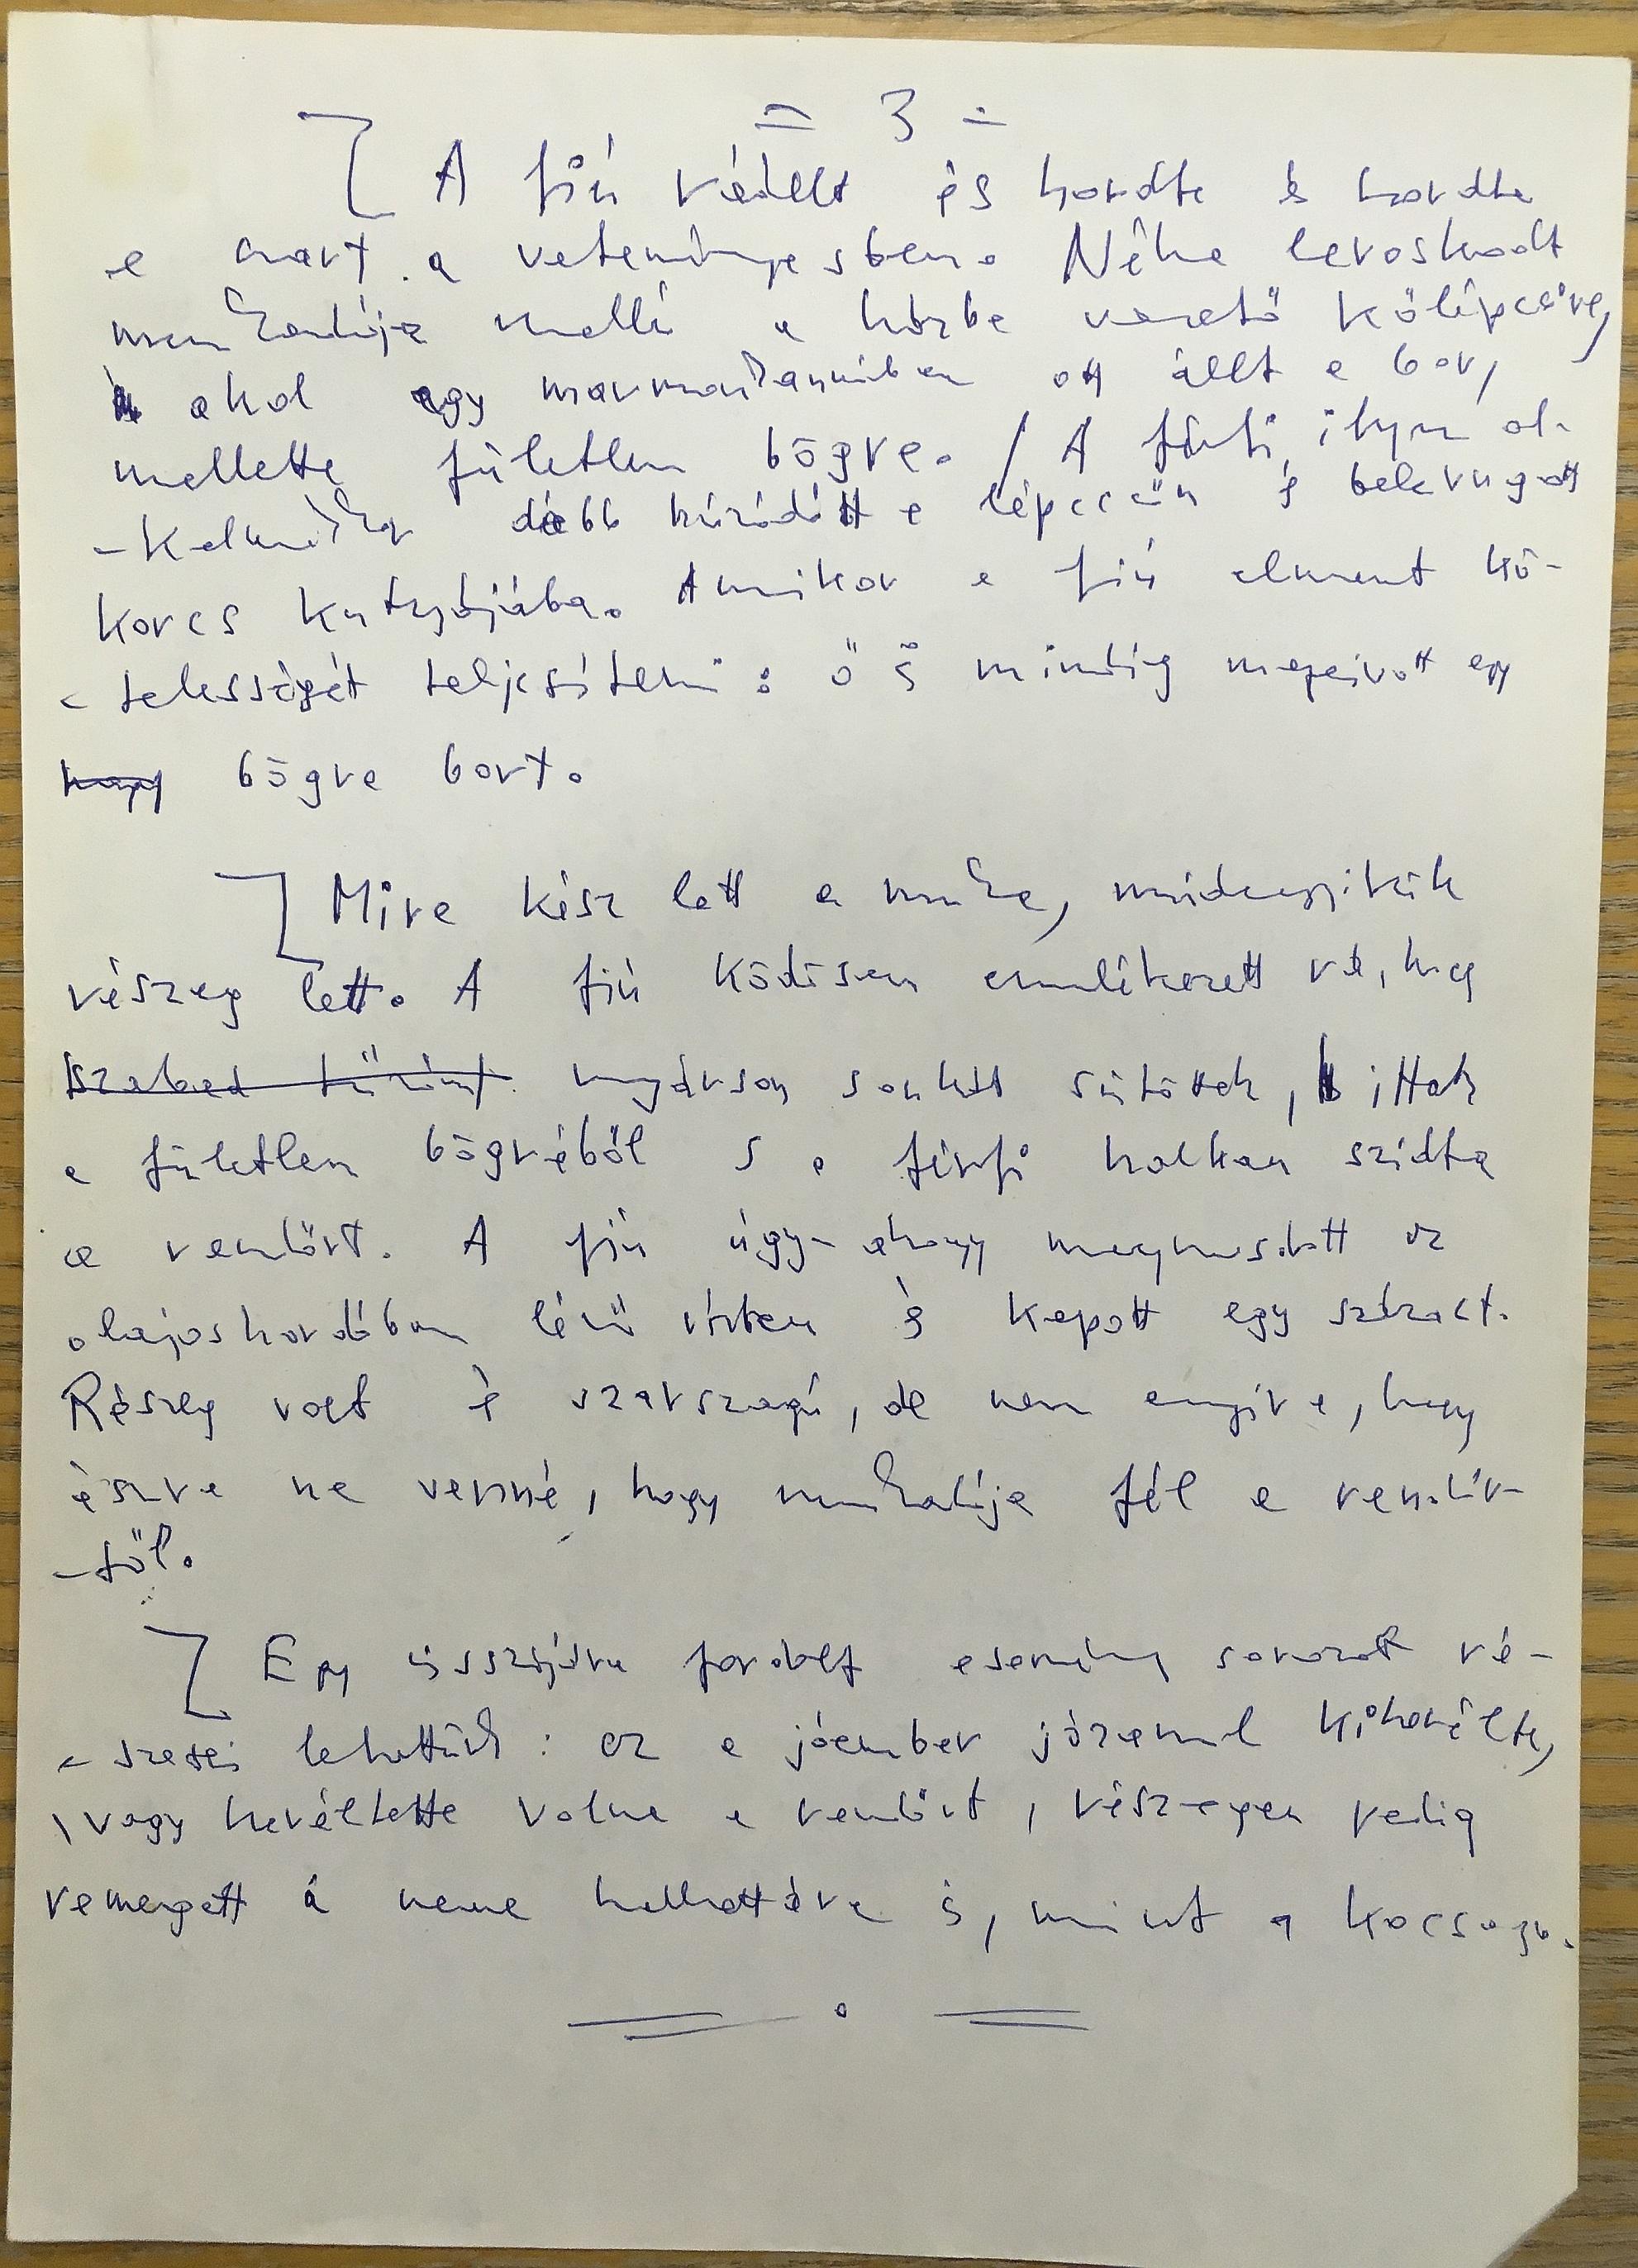 = 3 =
A fiú rádllt és hordta és hordta
a szart a veteményesben. Néha leroskadt
munkaadója mellé a házba vezető kőlépcsőre,
ahol egy marmonkannában ott állt a bor,
mellette fületlen bögre. / A férfi ilyen al-
-kalmakkor débb húzódott a lépcsőn és belerúgott
korcs kutyájába. Amikor a fiú elment kö-
-telességét teljesíteni: ő is mindig megivott egy
nagy bögre bort.
Mire kész lett a munka, mindegyikük
részeg lett. A fiú ködösen emlékezett rá, hogy
szabad tűzön nyárson sonkát sütöttek, ittak
a fületlen bögréből s a férfi halkan szidta
a rendőrt. A fiú úgy-ahogy megmosdott az
olajoshordóban lévő vízben és kapott egy százast.
Részeg volt és szarszagú, de nem annyira, hogy
észre ne venné, hogy munkaadója fél a rendőr-
-től.
Egy visszájára fordult esemény sorozat ré-
-szesei lehettünk: ez a jóember józanul
vagy heréltette volna a rendőrt, részegen pedig
remegett a neve hallatára is, mint a kocsonya.